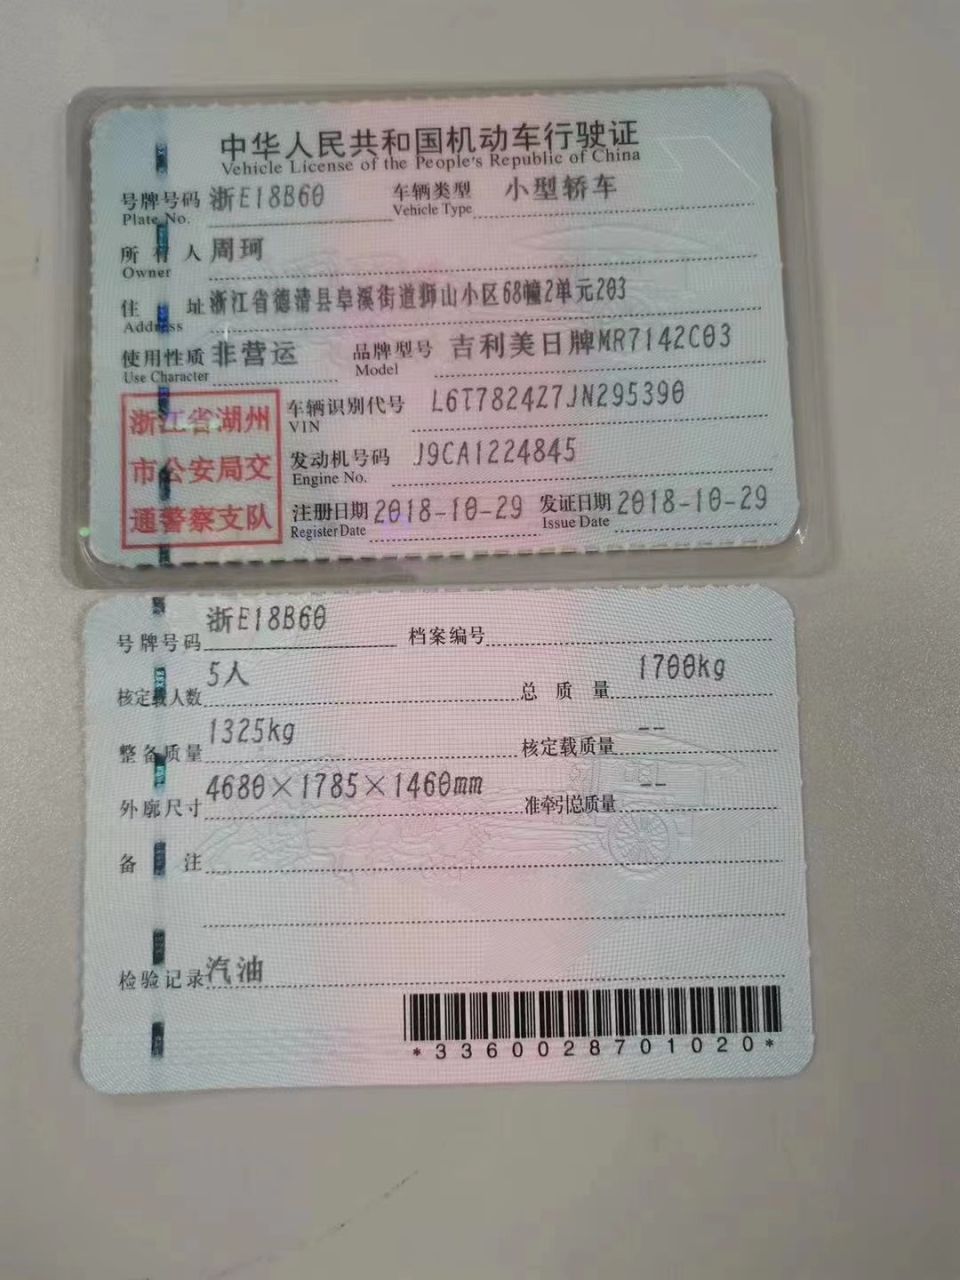 中华人民共和国机动车行驶证
Vehicle License of the People's Republic of China
号牌号码 浙E18B60 车辆类型 小型轿车
Plate No. Vehicle Type
所有人 周珂
Owner
住址 浙江省德清县阜溪街道狮山小区68幢2单元203
Address
使用性质 非营运 品牌型号 吉利美日牌MR7142C03
Use Character Model
浙江省湖州
市公安局交
通警察支队
车辆识别代号 L6T7824Z7JN295390
VIN
发动机号码 J9CA1224845
Engine No.
注册日期 2018-10-29 发证日期 2018-10-29
Register Date Issue Date
号牌号码 浙E18B60 档案编号
核定载人数 5人 总质量 1700kg
整备质量 1325kg 核定载质量 --
外廓尺寸 4680×1785×1460mm 准牵引总质量 --
备注
检验记录 汽油
*3360028701020*